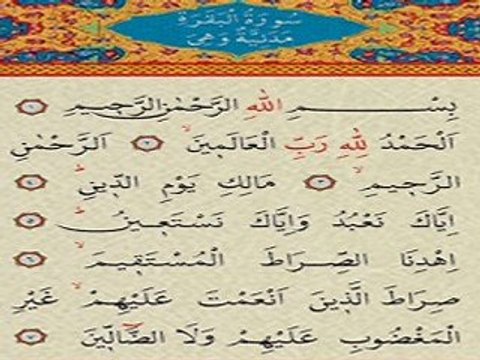 سورة البقرة
مدنية وهي
بِسْمِ اللهِ الرَّحْمٰنِ الرَّحِيمِ ١
اَلْحَمْدُ لِلهِ رَبِّ الْعَالَمِينَ ٢ اَلرَّحْمٰنِ
الرَّحِيمِ ٣ مَالِكِ يَوْمِ الدِّينِ ٤
اِيَّاكَ نَعْبُدُ وَاِيَّاكَ نَسْتَعِينُ ٥
اِهْدِنَا الصِّرَاطَ الْمُسْتَقِيمَ ٦
صِرَاطَ الَّذِينَ اَنْعَمْتَ عَلَيْهِمْ غَيْرِ
الْمَغْضُوبِ عَلَيْهِمْ وَلَا الضَّالِّينَ ٧